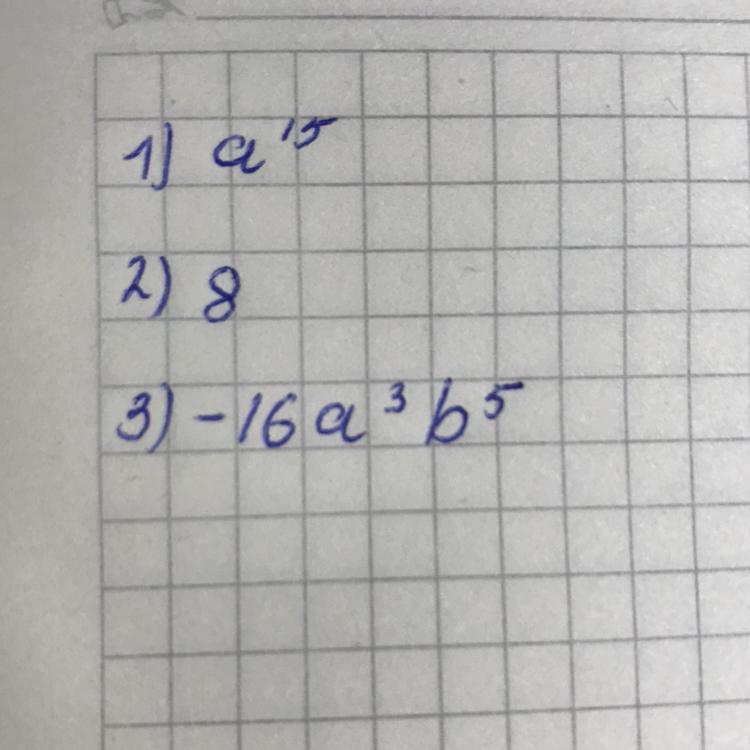 1) a¹⁵
2) 8
3) -16a³b⁵